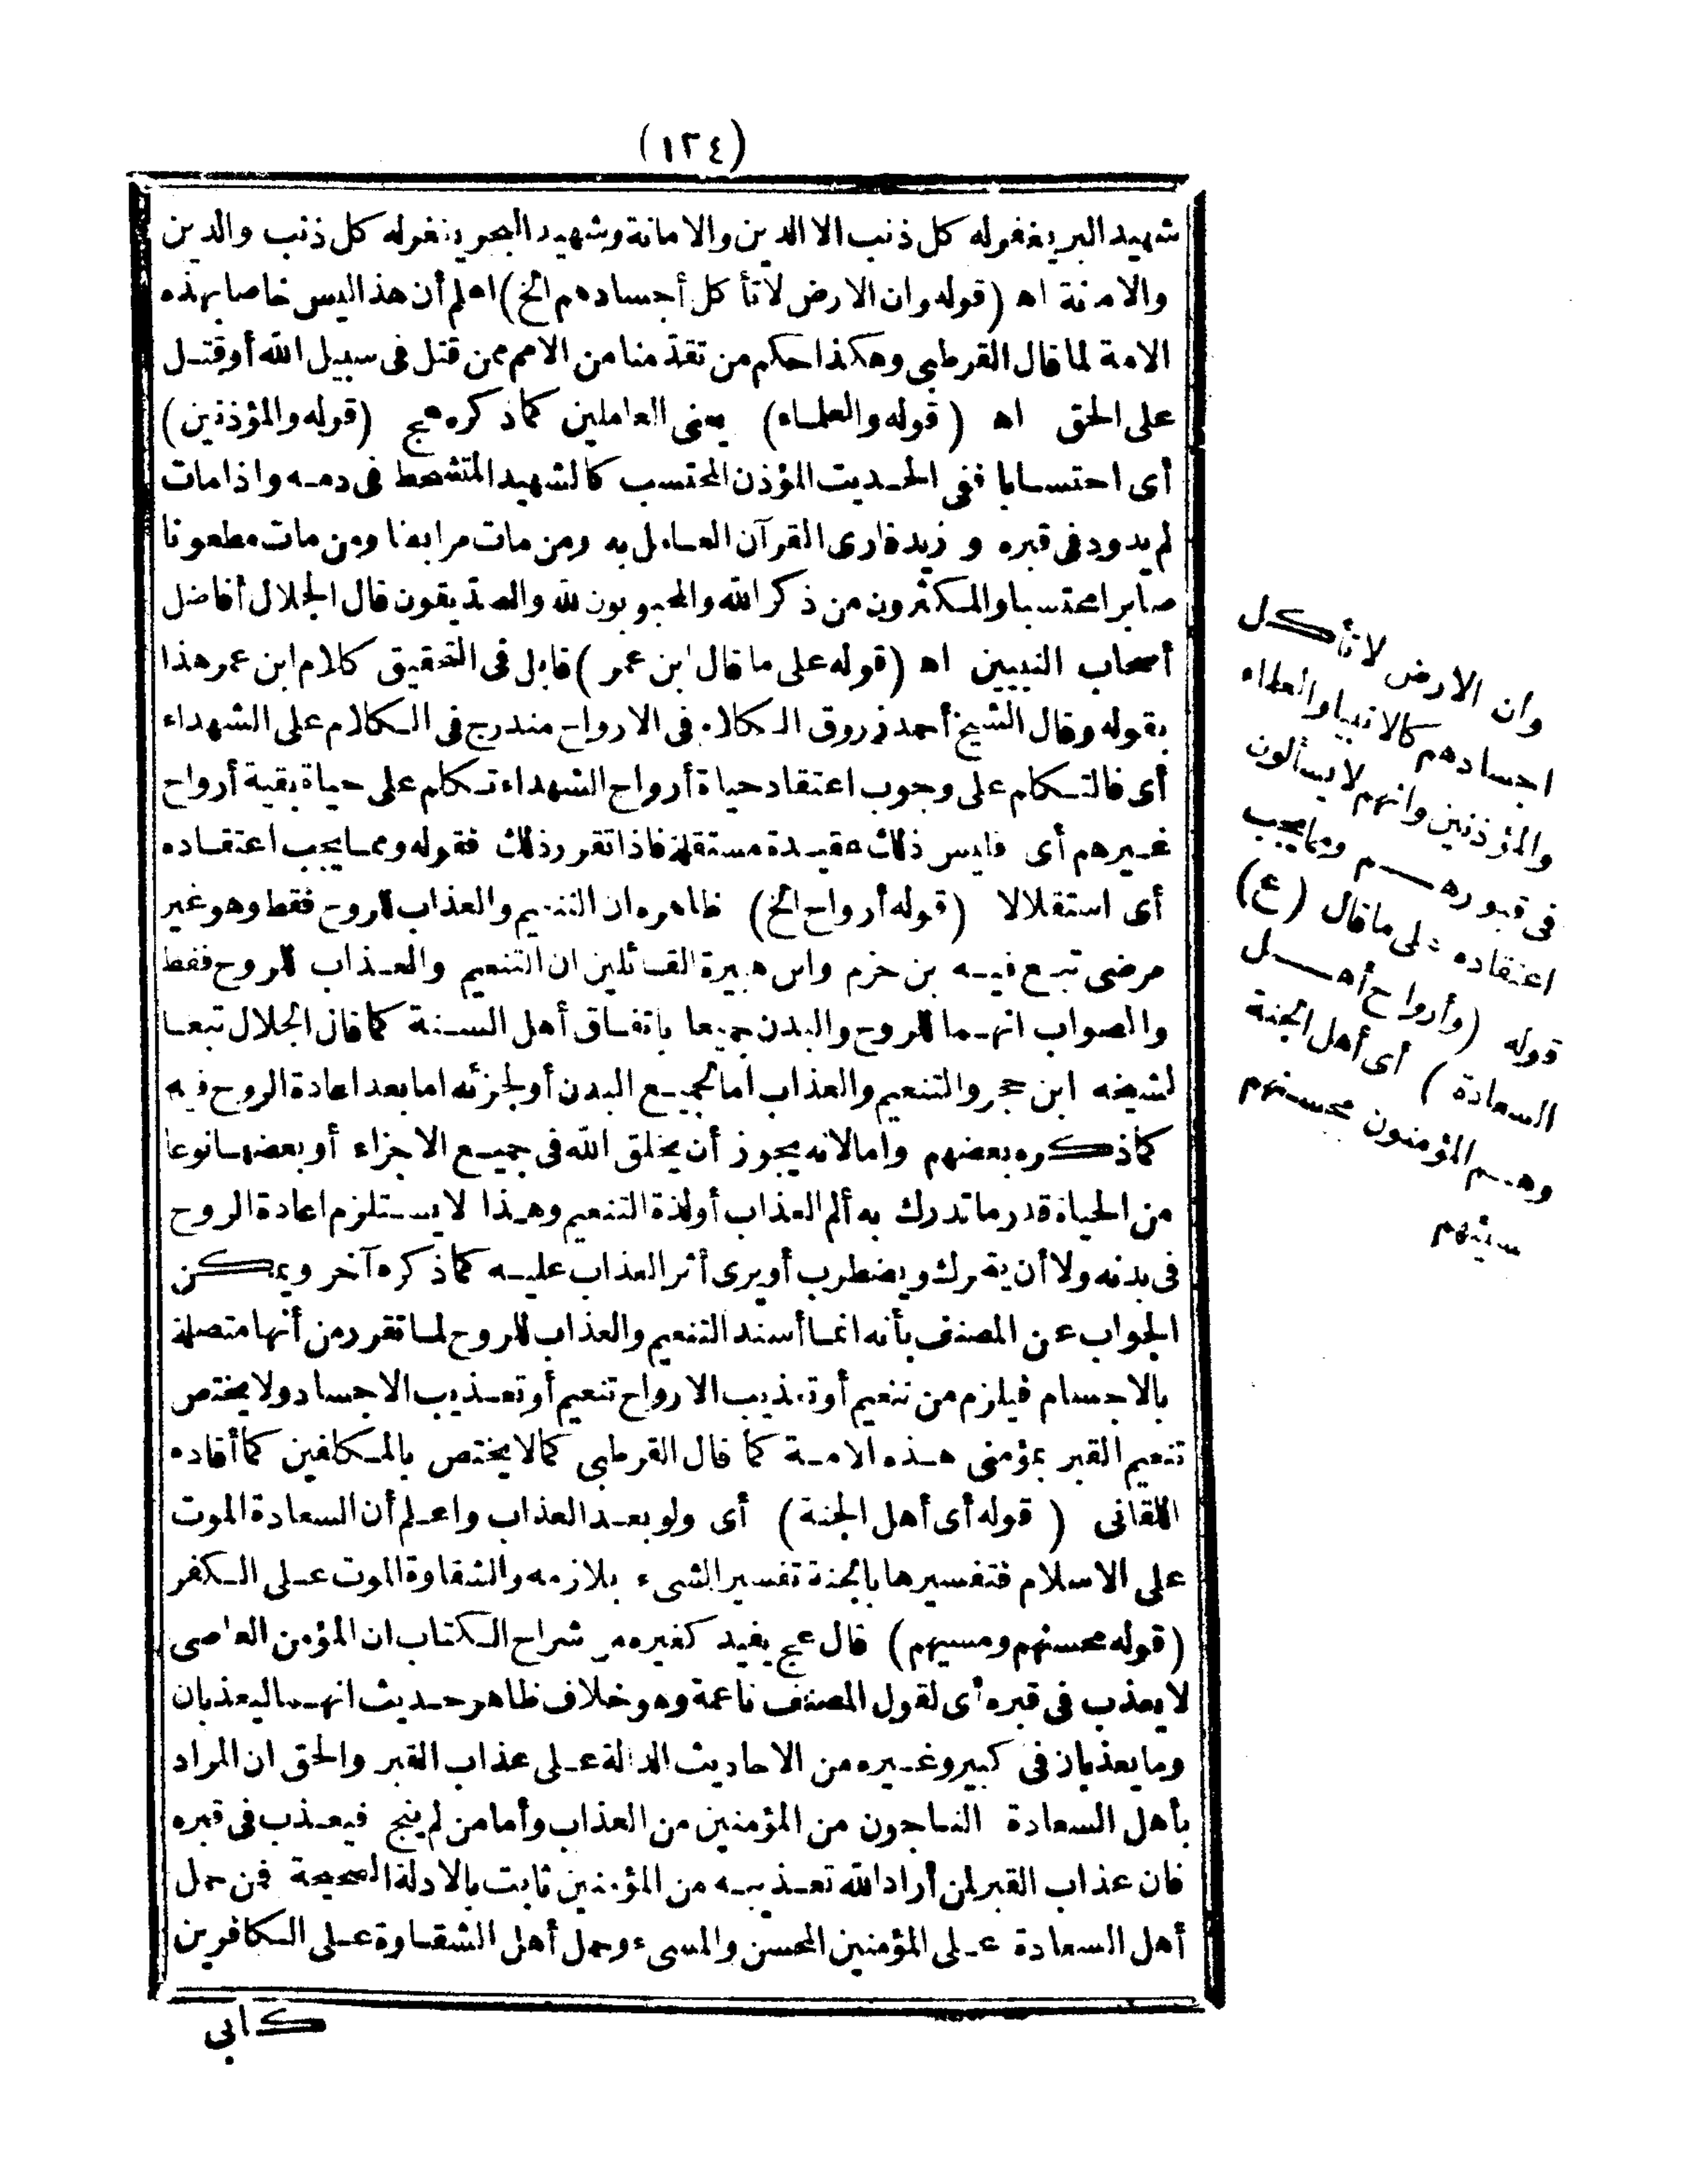 (١٢٤)
شهيد البر يغفر له كل ذنب الا الدين والامانة وشهيد البحر يغفر له كل ذنب والدين
والامانة اه (قوله وان الارض لا تأكل أجسادهم الخ) اعلم أن هذا ليس خاصا بهذه
الامة لما قال القرطبى وهكذا حكم من تقدّمنا من الامم ممن قتل فى سبيل الله أو قتـل
على الحق اه (قوله والعلمـاء) يعنى العاملين كما ذكره عج (قوله والمؤذنين)
أى احتسـابا ففى الحـديث المؤذن المحتسب كالشهيد المتشحط فى دمـه واذا مات
لم يدود فى قبره و زيد قارئ القرآن العـامل به ومن مات مرابطا ومن مات مطعونا
صابرا محتسبا والمكثرون من ذكر الله والمحبوبون لله والصدّيقون قال الجلال أفاضل
أصحاب النبيين اه (قوله على ما قال ابن عمر) قابل فى التحقيق كلام ابن عمر هذا
بقوله وقال الشيخ أحمد زروق الكلام فى الارواح مندرج فى الكلام على الشهداء
أى فالتكلم على وجوب اعتقاد حياة أرواح الشهداء تكلم على حياة بقية أرواح
غـيرهم أى فليس ذلك عقيـدة مستقلة فاذا تقرر ذلك فقوله وممـا يجب اعتقـاده
أى استقلالا (قوله أرواح الخ) ظاهره ان التنعيم والعذاب للروح فقط وهو غير
مرضى تبـع فيـه بن حزم وابن هبيرة القـائلين ان التنعيم والعـذاب للروح فقط
والصواب انهـما للروح والبدن جميعا باتفـاق أهل السـنة كما قال الجلال تبعـا
لشيخه ابن حجر والتنعيم والعذاب أما لجميـع البدن أو لجزئه اما بعد اعادة الروح فيه
كما ذكره بعضهم واما لا لانه يجوز أن يخلق الله فى جميـع الاجزاء أو بعضهـا نوعا
من الحياة قدر ما تدرك به ألم العذاب أو لذة التنعيم وهـذا لا يسـتلزم اعادة الروح
فى بدنه ولا أن يتحرك ويضطرب أو يرى أثر العذاب عليـه كما ذكره آخر ويمكـن
الجواب عن المصنف بأنه انمـا أسند التنعيم والعذاب للروح لمـا تقرر من أنها متصلة
بالاجسام فيلزم من تنعيم أو تعذيب الارواح تنعيم أو تعـذيب الاجساد ولا يختص
تنعيم القبر بمؤمنى هـذه الامـة كما قال القرطبى كما لا يختص بالمكلفين كما أفاده
اللقانى (قوله أى أهل الجنة) أى ولو بعـد العذاب واعـلم أن السعادة الموت
على الاسلام فتفسيرها بالجنة تفسير الشىء بلازمه والشقاوة الموت عـلى الكفر
(قوله محسنهم ومسيهم) قال عج يفيد كغيره من شراح الكتاب ان المؤمن العاصى
لا يعذب فى قبره أى لقول المصنف ناعمة وهو خلاف ظاهر حـديث انهـما ليعذبان
وما يعذبان فى كبير وغـيره من الاحاديث الدالة عـلى عذاب القبر والحق ان المراد
بأهل السعادة النـاجون من المؤمنين من العذاب وأما من لم ينج فيعـذب فى قبره
فان عذاب القبر لمن أراد الله تعـذيبـه من المؤمنين ثابت بالادلة الصحيحة فمن حمل
أهل السعادة عـلى المؤمنين المحسن والمسىء وحمل أهل الشقـاوة عـلى الكافرين
كابى
وان الارض لا تأكل
اجسادهم كالانبيا والعلماء
والمؤذنين وانهم لا يسألون
فى قبورهـم ومما يجب
اعتقاده على ما قال (ع)
قوله (وأرواح أهـل
السعادة) أى أهل الجنة
وهـم المؤمنون محسنهم
سيئهم